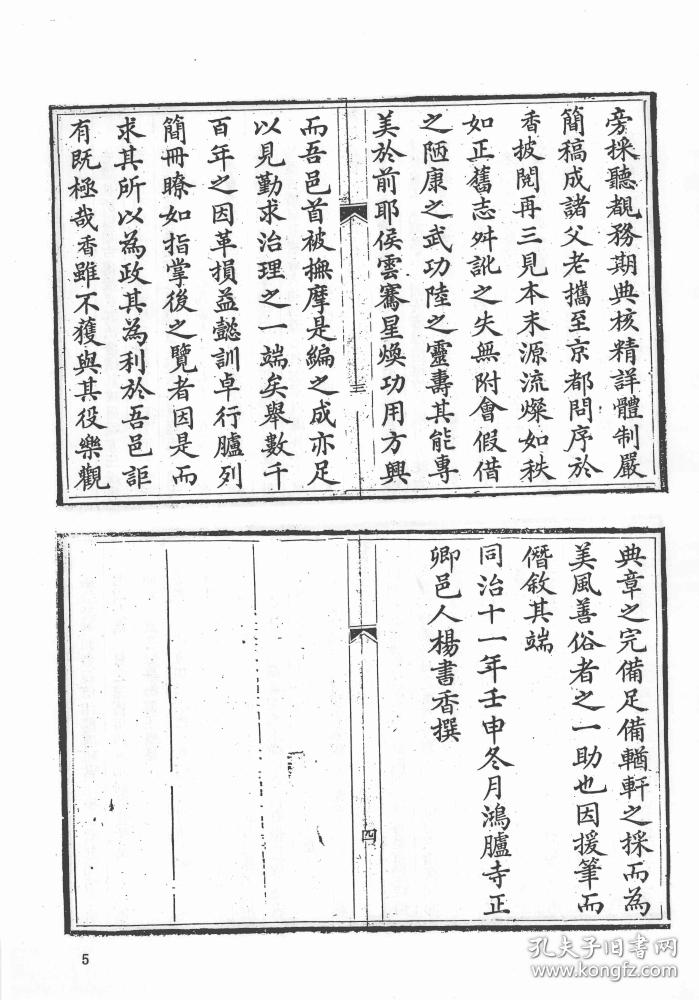 旁採聽覩務期典核精詳體制嚴
簡稿成諸父老攜至京都問序於
香披閱再三見本末源流燦如秩
如正舊志舛訛之失無附會假借
之陋康之武功陸之靈壽其能專
美於前耶侯雲騫星煥功用方興
三
而吾邑首被撫摩是編之成亦足
以見勤求治理之一端矣舉數千
百年之因革損益懿訓卓行臚列
簡冊瞭如指掌後之覽者因是而
求其所以為政其為利於吾邑詎
有既極哉香雖不獲與其役樂觀
典章之完備足備輶軒之採而為
美風善俗者之一助也因援筆而
僭敘其端
同治十一年壬申冬月鴻臚寺正
卿邑人楊書香撰
四
5
孔夫子旧书网
www.kongfz.com